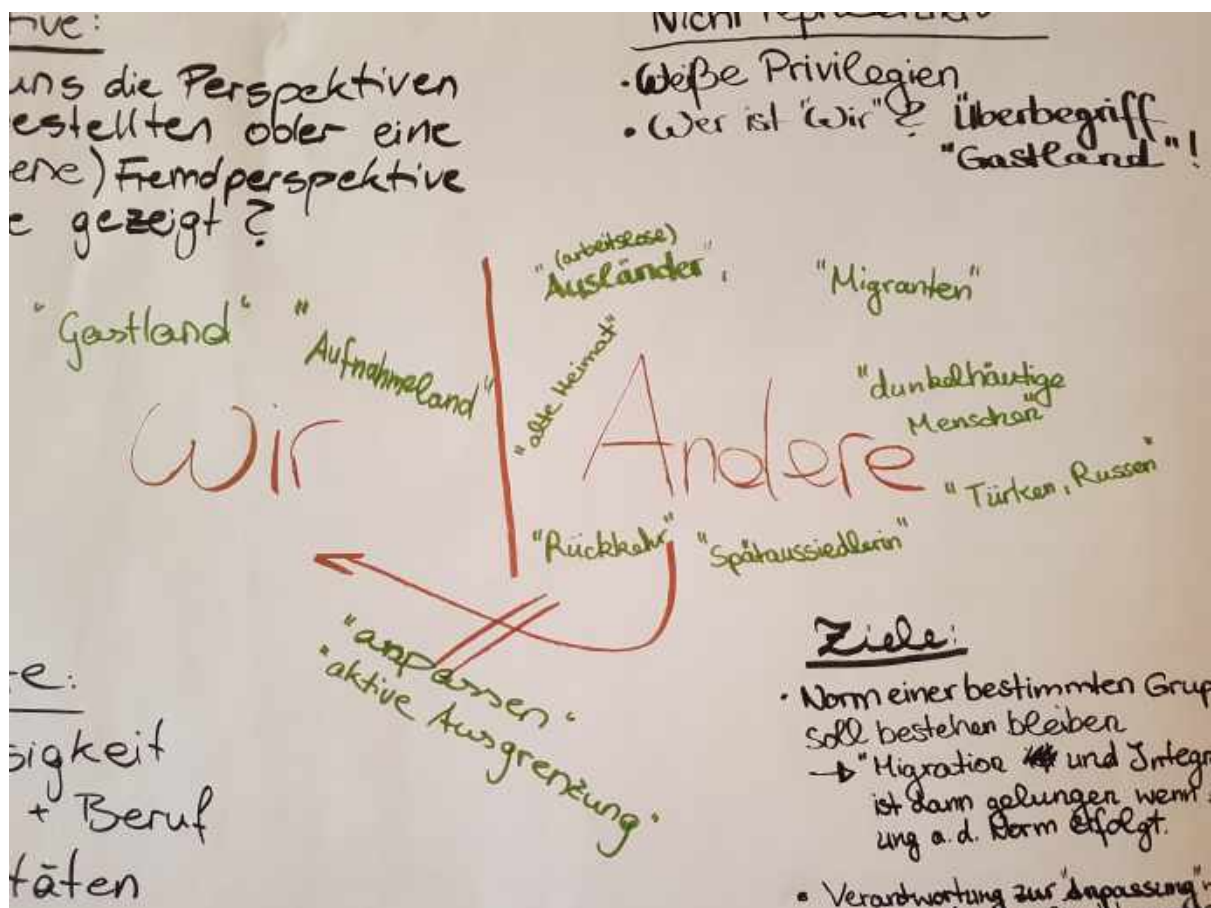 uns die Perspektiven
estellten oder eine
ene) Fremdperspektive
e gezeigt?
· Weiße Privilegien
· Wer ist "Wir"? Überbegriff
"Gastland"!
"Gastland"
"Aufnahmeland"
Wir
"(arbeitslose)
Ausländer",
"Migranten"
"alte Heimat"
Andere
"dunkelhäutige
Menschen"
"Türken, Russen"
"Rückkehr"
"Spätaussiedlerin"
"anpassen"
"aktive Ausgrenzung"
e:
sigkeit
+ Beruf
täten
Ziele:
· Norm einer bestimmten Grup
soll bestehen bleiben
→ "Migration und Integr
ist dann gelungen wenn
ung a.d. Norm erfolgt.
• Verantwortung zur "Anpassung"